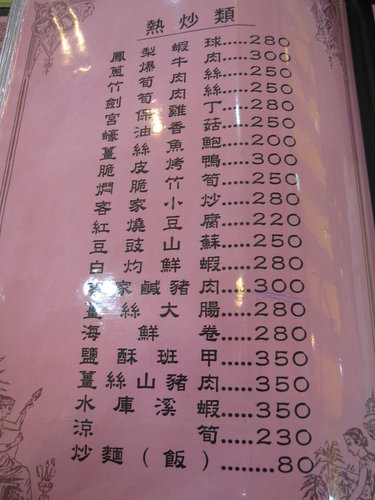 熱炒類
鳳梨蝦球.....280
蔥爆牛肉.....300
竹筍肉絲.....250
劍筍肉絲.....250
宮保雞丁.....280
蠔油香菇.....250
薑絲魚鮑.....200
脆皮烤鴨.....300
燜脆竹筍.....250
客家小炒.....280
紅燒豆腐.....220
豆豉山蘇.....250
白灼鮮蝦.....280
家鹹豬肉.....300
薑絲大腸.....280
海鮮卷.....280
鹽酥班甲.....350
薑絲山豬肉.....350
水庫溪蝦.....350
涼筍.....230
炒麵(飯).........80